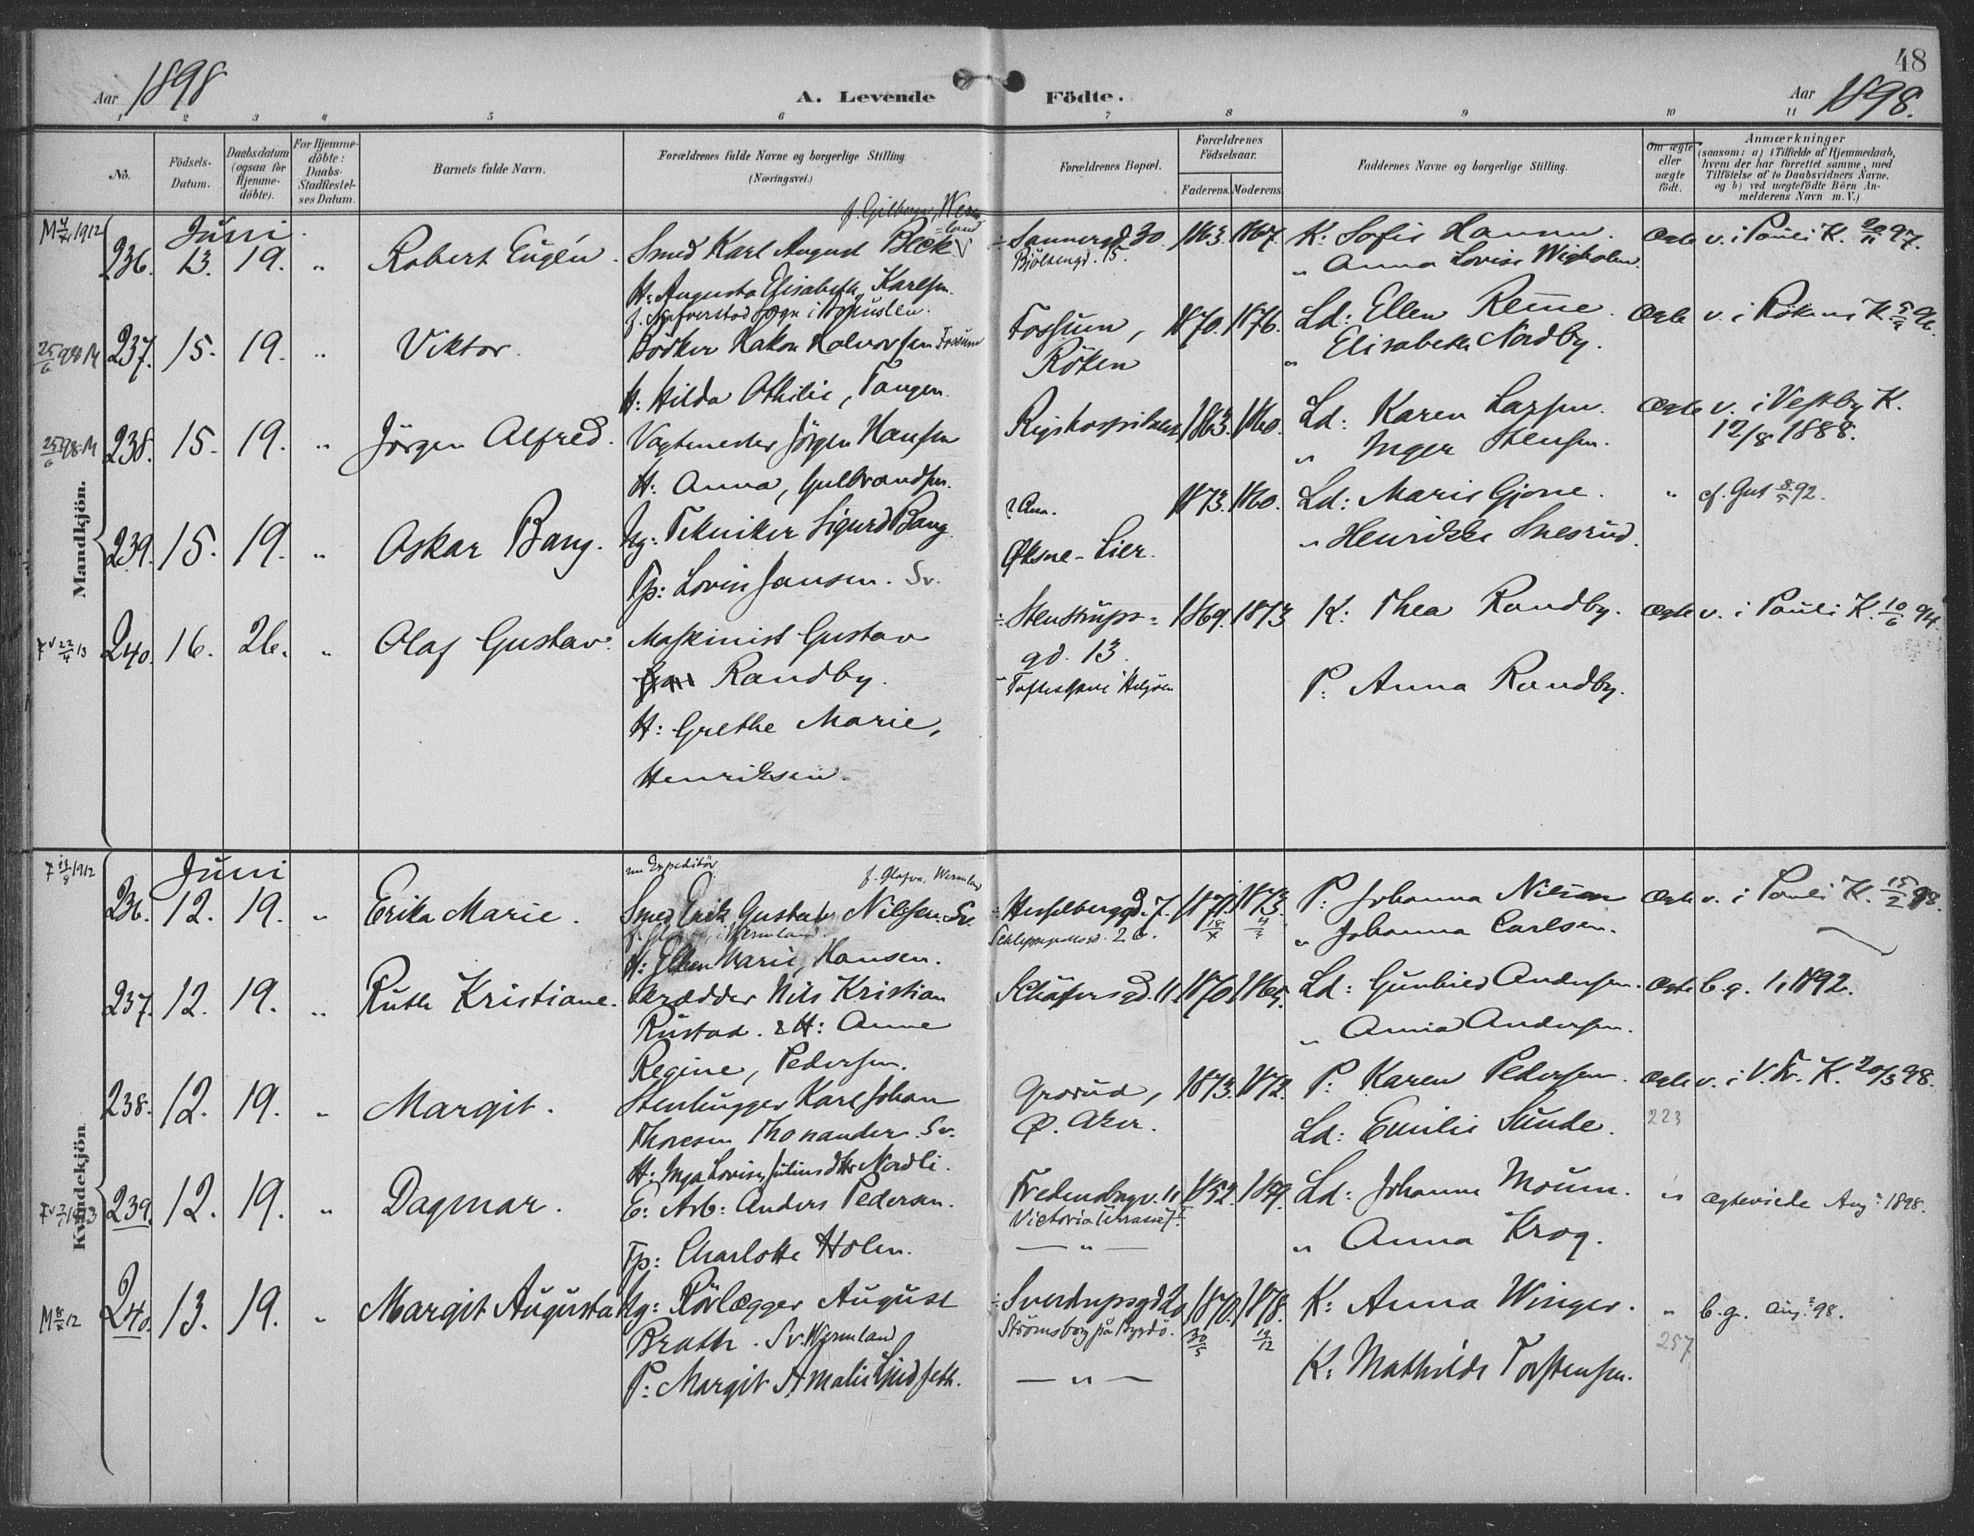 48
Aar 1898 A. Levende Födte. Aar 1898.
1 2 3 4 5 6 7 8 9 10 11
No. Födsels-Datum. Daabsdatum (ogsaa for Hjemmedöbte). For Hjemmedöbte: Daabs-Stadfæstelses Datum. Barnets fulde Navn. Forældrenes fulde Navne og borgerlige Stilling. (Næringsvei.) Forældrenes Bopæl. Forældrenes Födselsaar. Faderens. Moderens. Faddernes Navne og borgerlige Stilling. Om ægte eller uægte födt. Anmærkninger (saasom: a) i Tilfælde af Hjemmedaab, hvem der har forrettet samme, med Tilföielse af to Daabsvidners Navne, og b) ved uægtefödte Börn Anmelderens Navn m. V.)
Mandkjön.
Juni
236. 13. 19. " Robert Eugén. Smed Karl August Beck
H: Augusta Elisabeth, Karlsen.
Sannergd. 30
Bjölsengd. 15.
1863. 1867. K: Sofie Hanum.
" Anna Lovise Wigholm.
Ægte v. i Pauli K. 20/11 97.
237. 15. 19. " Viktor. Bödker Hakon Halvorsen Fossum
H: Hilda Othilie, Tangen.
Fossum,
Röken
1870. 1876. Ld: Ellen Remme.
" Elisabeth Nordby.
Ægte v. i Rökens K.
238. 15. 19. " Jörgen Alfred. Vagtmester Jörgen Hansen
H: Anna, Gulbrandsen.
Rigshospitalet 1863. 1860. Ld: Karen Larsen.
" Inger Stensen.
Ægte v. i Vestby K.
12/8 1888.
239. 15. 19. " Oskar Bang. Ug: Tekniker Sigurd Bang
Tp: Lovise Jansen. Sv.
Øksne - Lier.
1873. 1860. Ld: Marie Gjone.
" Henrikke Snesrud.
"
240. 16. 26. " Olaf Gustav. Maskinist Gustav
Randby.
H: Grethe Marie,
Henriksen.
Stenstrups-
gd. 13.
1869. 1873 K: Thea Randby.
P: Anna Randby.
Ægte v. i Pauli K. 10/6 94.
Kvindekjön
Juni
nu Expeditör f. Glafva, Wermland
236. 12. 19. " Erika Marie. Smed Erik Gustaf Nilsen. Sv.
H: Ellen Marie, Hansen.
Hesselberggd. 7.
1871 1873. P: Johanna Nilsen
" Johanna Carlsen.
Ægte v. i Pauli K. 15/2 98.
237. 12. 19. " Ruth Kristiane. Skrædder Nils Kristian
Rustad. & H: Anne
Regine, Pedersen.
Schäfersgd. 11. 1870. 1865. Ld: Gunhild Andersen.
" Anna Andersen.
Ægte b. g. 1892.
238. 12. 19. " Margit. Stenhugger Karl Johan
Thoresen Thonander. Sv.
H: Inga Lovise, Juliusdtr Nordli.
Grorud,
Ø. Aker.
1873. 1872. P: Karen Pedersen.
Ld: Emilie Sunde.
Ægte v. i V. Fr. K. 20/3 98.
223
239. 12. 19. " Dagmar. E: Arb: Anders Pedersen.
Tp: Charlotte Holm.
Fredensborgv. 11
Victoria terrasse
— " —
1852. Ld: Johanne Moum.
" Anna Krog.
" ægteviede Aug. 1898.
240. 13. 19. " Margit Augusta Ug: Rörlægger August
Brath. Sv. Wermland
P: Margit Amalie Lindseth.
Sverdrupsgd 20
Strömsborg på Bygdö.
— " —
1870. 1878. K: Anna Winger.
K: Mathilde Torstensen.
" b. g. Aug. 98.
257